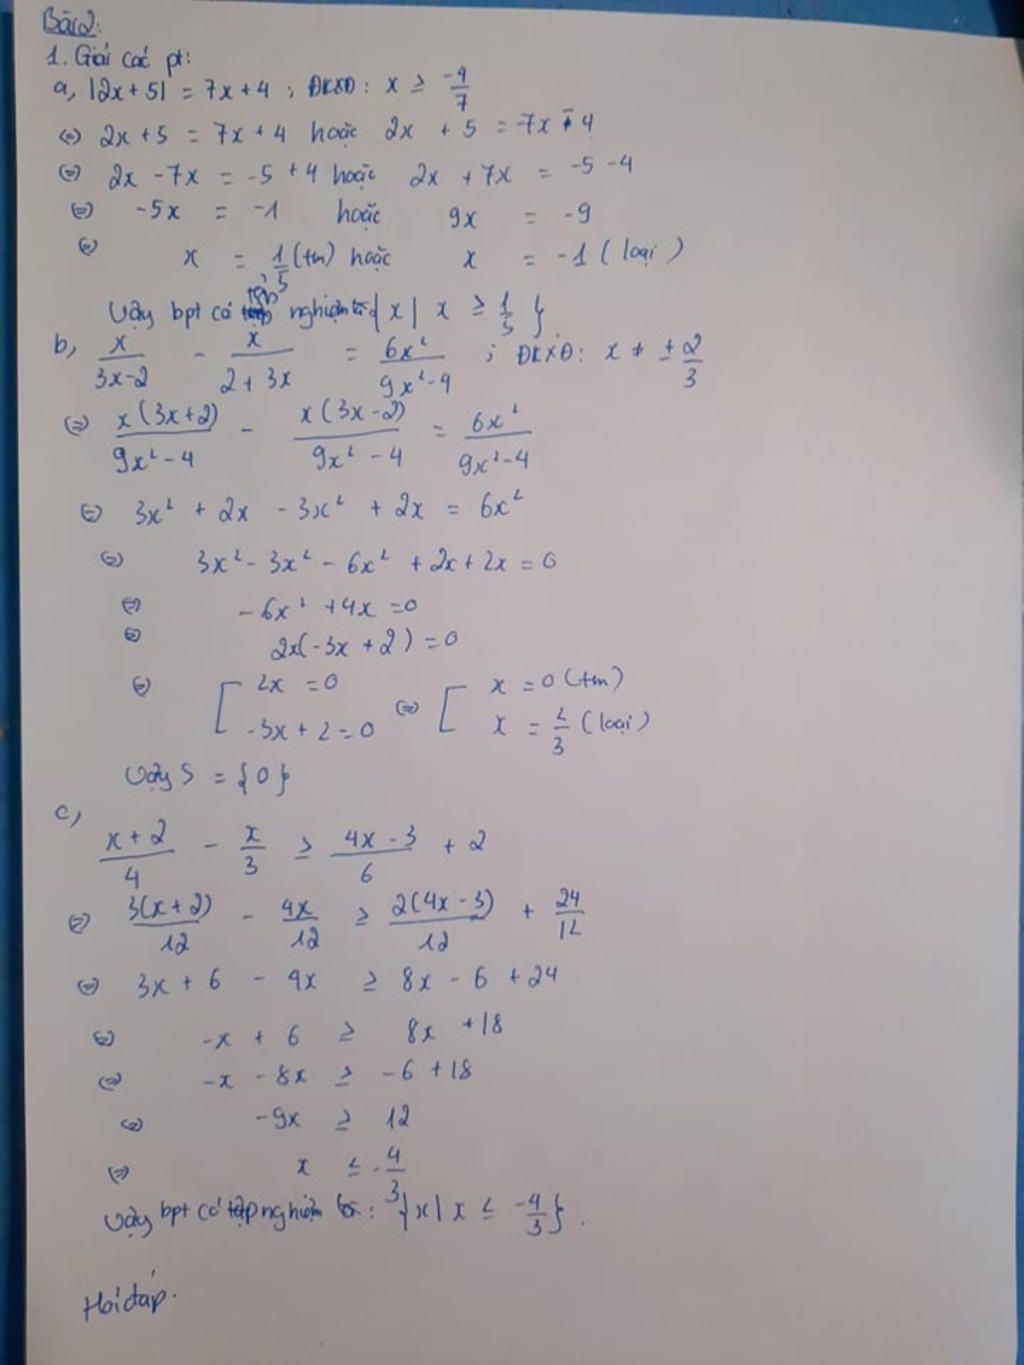 Bài 2:
1. Giải các pt:
a, |2x+5| = 7x+4 ; ĐKXĐ: x ≥ -4/7
(=) 2x+5 = 7x+4 hoặc 2x + 5 = -7x - 4
(=) 2x - 7x = -5 + 4 hoặc 2x + 7x = -5 -4
(=) -5x = -1 hoặc 9x = -9
(=) x = 1/5 (tm) hoặc x = -1 (loại)
Vậy bpt có tập nghiệm là {x | x ≥ 1/5 }
b, x/(3x-2) - x/(2+3x) = 6x²/(9x²-4) ; ĐKXĐ: x ≠ ± 2/3
(=) x(3x+2)/(9x²-4) - x(3x-2)/(9x²-4) = 6x²/(9x²-4)
(=) 3x² + 2x - 3x² + 2x = 6x²
(=) 3x² - 3x² - 6x² + 2x + 2x = 0
(=) -6x² + 4x = 0
(=) 2x(-3x + 2) = 0
(=) [ 2x = 0 (=) [ x = 0 (tm)
-3x + 2 = 0 x = 2/3 (loại)
Vậy S = {0}
c,
(x+2)/4 - x/3 ≥ (4x-3)/6 + 2
(=) 3(x+2)/12 - 4x/12 ≥ 2(4x-3)/12 + 24/12
(=) 3x + 6 - 4x ≥ 8x - 6 + 24
(=) -x + 6 ≥ 8x + 18
(=) -x - 8x ≥ -6 + 18
(=) -9x ≥ 12
(=) x ≤ -4/3
Vậy bpt có tập nghiệm là: {x | x ≤ -4/3}.
Hỏi đáp.